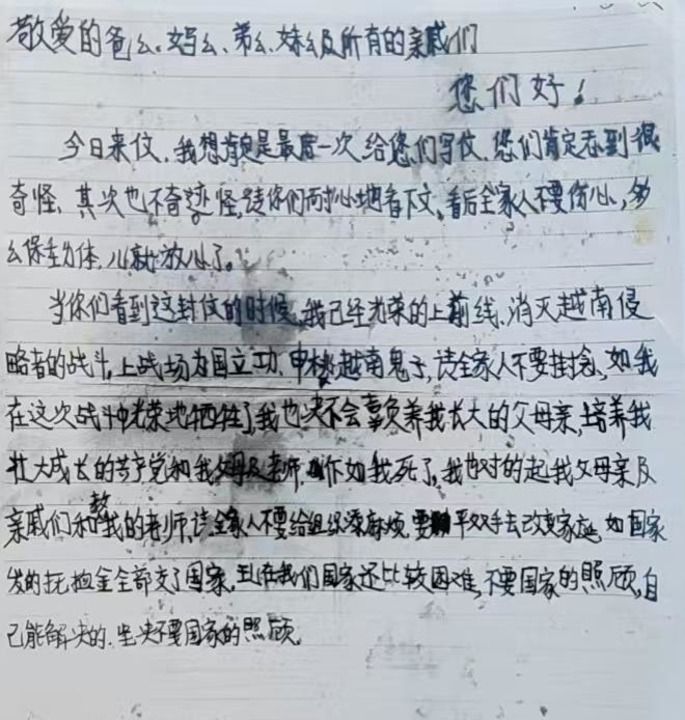 敬爱的爸么、妈么、弟么、妹么及所有的亲戚们
您们好!
今日来仪、我想肯定是最后一次给您们写仪、您们肯定看到很
奇怪、其次也不奇怪,请你们耐心地看下文、看后全家人不要伤心,多
么保重身体,儿就放心了。
当你们看到这封仪的时候,我已经光荣的上前线、消灭越南侵
略者的战斗,上战场为国立功、申械越南鬼子,请全家人不要挂念,如我
在这次战斗中光荣地牺牲了,我也决不会辜负养我长大的父母亲,培养我
壮大成长的共产党和我父母及老师,作如我死了,我也对的起我父母亲及
亲戚们和教我的老师,请全家人不要给组织添麻烦,要平双手去改变家庭,如国家
发的抚恤金全部交了国家,到在我们国家还比较困难,不要国家的照顾,自
己能解决的、坐决不要国家的照顾。